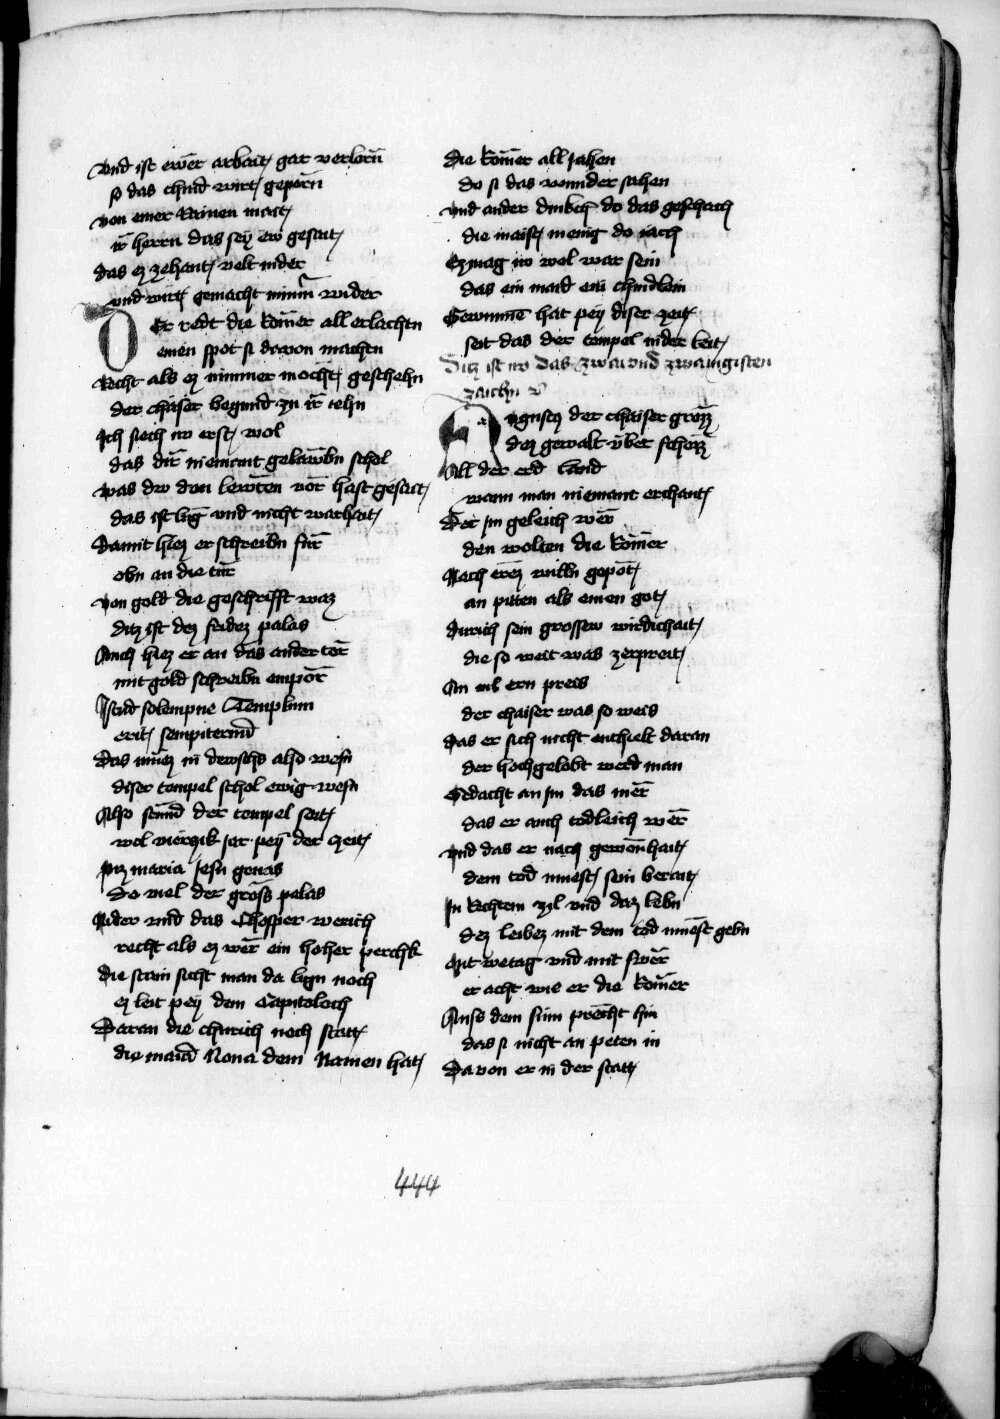 Vnd ist ewer arbait gar verlorn
so das chind wirt geporn
von einer Rainen mait
ir herrn das sey ew gesait
das ez zehant velt nider
vnd wirt gemacht nimmer wider
Der redt die Romer all erlachtn
einen spot si dorvon machtn
Recht als ez nimmer mocht geschehn
der chaiser begund zu ir iehn
Ich siech nw erst wol
das dir niemant gelawbn schol
was dw den lewten vor hast gesait
das ist lug vnd nicht warhait
Damit hiez er schreibn fur
obn an die tur
von gold die geschrifft waz
ditz ist dez fridez palas
Auch hiez er an das ander tor
mit gold schreibn empor
Istud solempne Templum
erit sempiternum
das muez in dewschs also wesn
diser tempel schol ewig wesn
Also stuend der tempel seit
wol vierzik jar pey der zeit
piz maria Jesu genas
Do viel der gross palas
Nider vnd das Chospper werich
recht als ez wer ein hoher perchk
die stain sicht man da lign noch
ez leit pey dem Capitoloch
Daran die chirich noch statt
die maria Nona dem Namen hat
die Romer all jahen
do si das wunder sahen
vnd ander dinkch do das geschach
die maist menig do iach
Ez mag nw wol war sein
das ein maid ein chindlein
Gewunnen hat pey diser zeit
seit das der tempel nider leit
Ditz ist nw das zwai vnd zwaintzigisten
zaichn
Augustus der chaiser grozz
dez gewalt vber schozz
All der erd land
wann man niemant erchant
Der im geleich wer
den wolten die Romer
Nach erez willn gepot
an piten als einen got
durich sein grossew wirdichait
die so weit was zerpreit
An vil ern preis
der chaiser was so weis
das er sich nicht enthielt daran
der hochgelobt werd man
Gedacht an im das mer
das er auch todleich wer
vnd das er nach gewonhait
dem tod muest sein berait
In Rechtem zyl vnd daz lebn
dez leibez mit dem tod muest gebn
Mit wetag vnd mit swer
er acht wie er die Romer
Auss dem sinn precht hin
das si nicht an peten in
Da von er in der statt
444